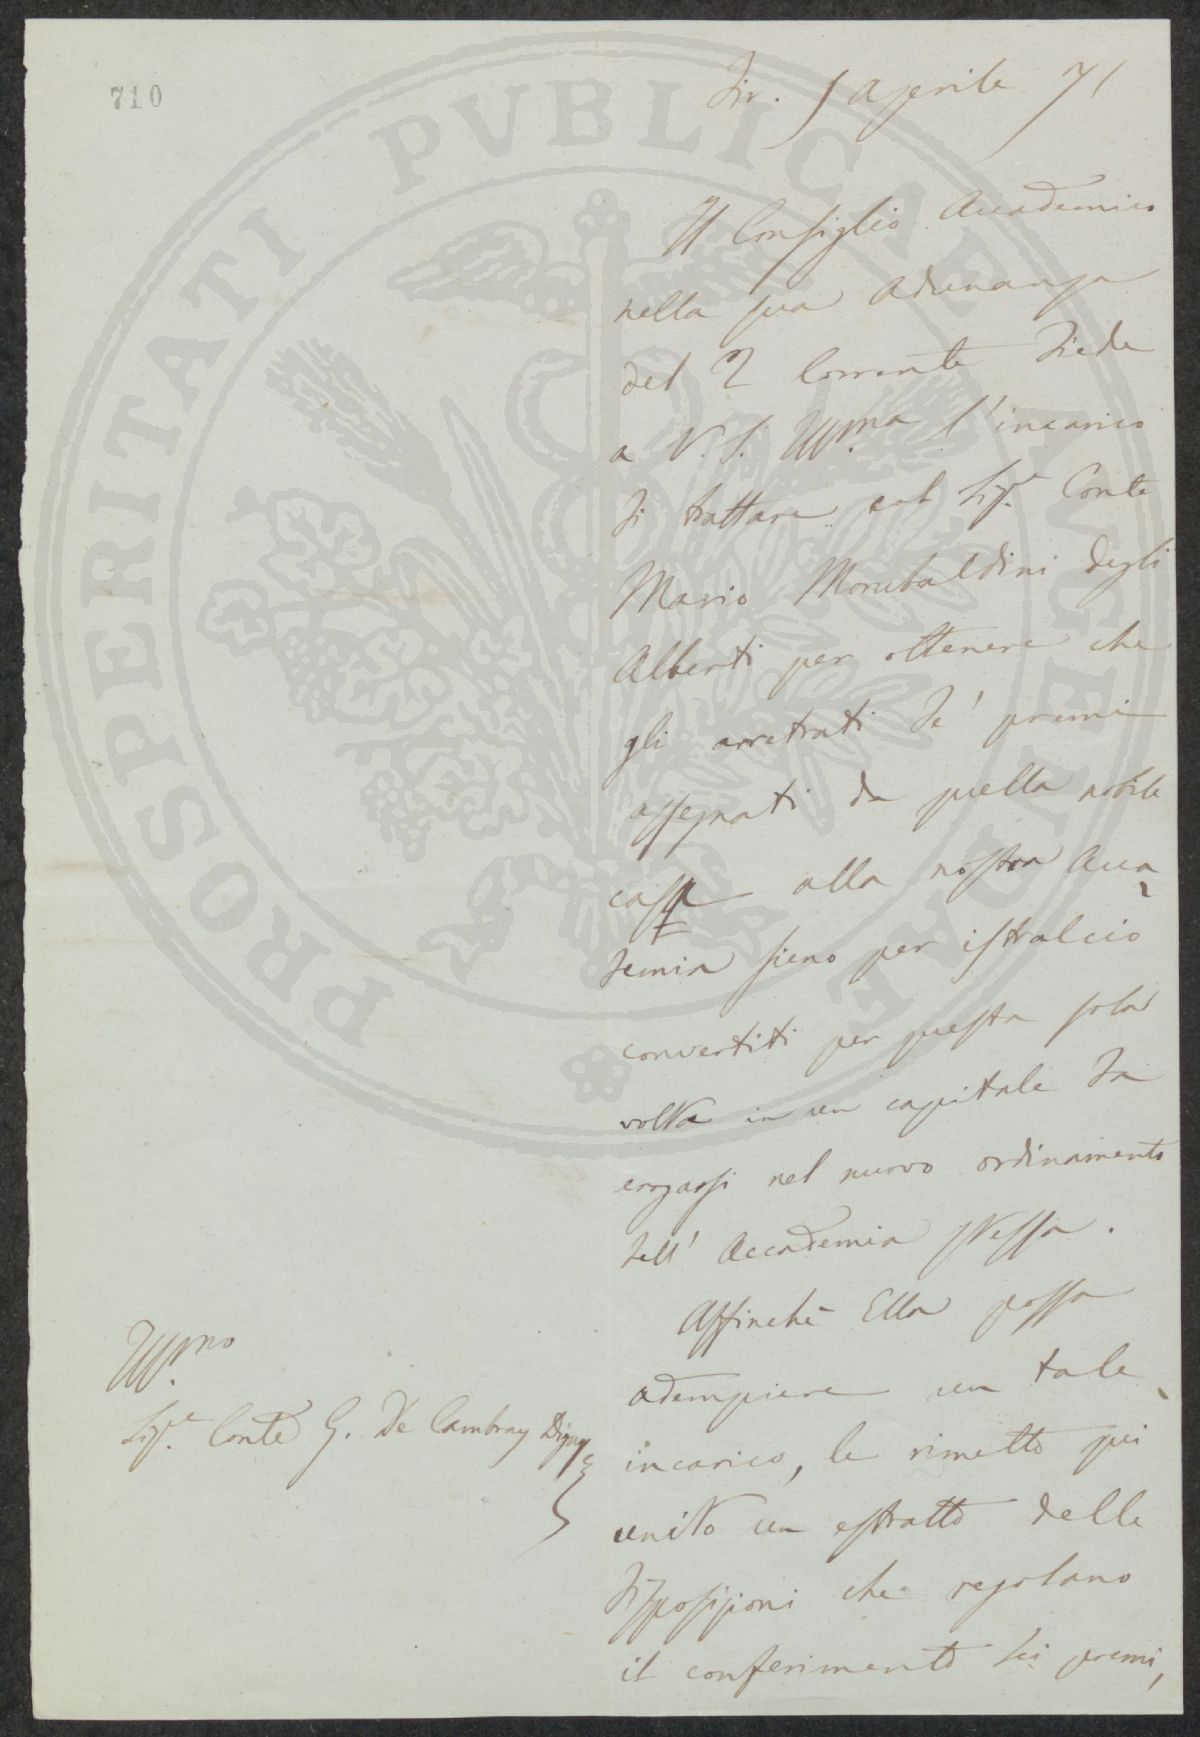 710
Fir. 5 Aprile 71
Il Consiglio Accademico
nella sua adunanza
del 2 Corrente diede
a V. S. Ill.ma l'incarico
di trattare col Sig.e Conte
Mario Morubaldini degli
Alberti per ottenere che
gli arretrati de' premi
assegnati da quella nobile
casa alla nostra Acca
demia sieno per istralcio
convertiti per questa sola
volta in un capitale da
erogarsi nel nuovo ordinamento
dell' Accademia stessa.
Affinchè Ella possa
adempiere un tale
incarico, le rimetto qui
unito un estratto delle
disposizioni che regolano
il conferimento dei premi,
Ill.mo
Sig.e Conte G. De Cambray Digny
PROSPERITATI PVBLICAE AVGENDAE